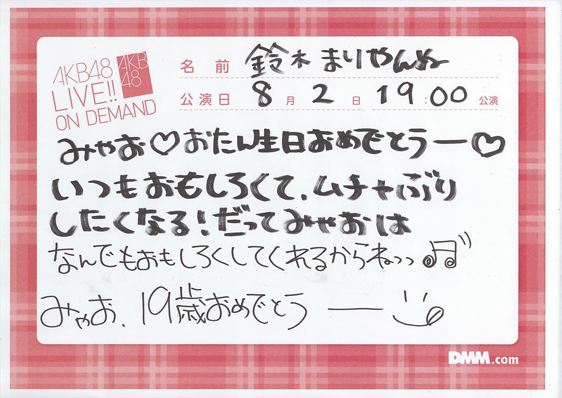 AKB48
LIVE!!
ON DEMAND
AKB
48
名前 鈴木まりやんぬ
公演日 8月2日 19:00公演
みゃお♡おたん生日おめでとうー♡
いつもおもしろくて、ムチャぶり
したくなる!だってみゃおは
なんでもおもしろくしてくれるからねっっ♫
みゃお、19歳おめでとうー
DMM.com